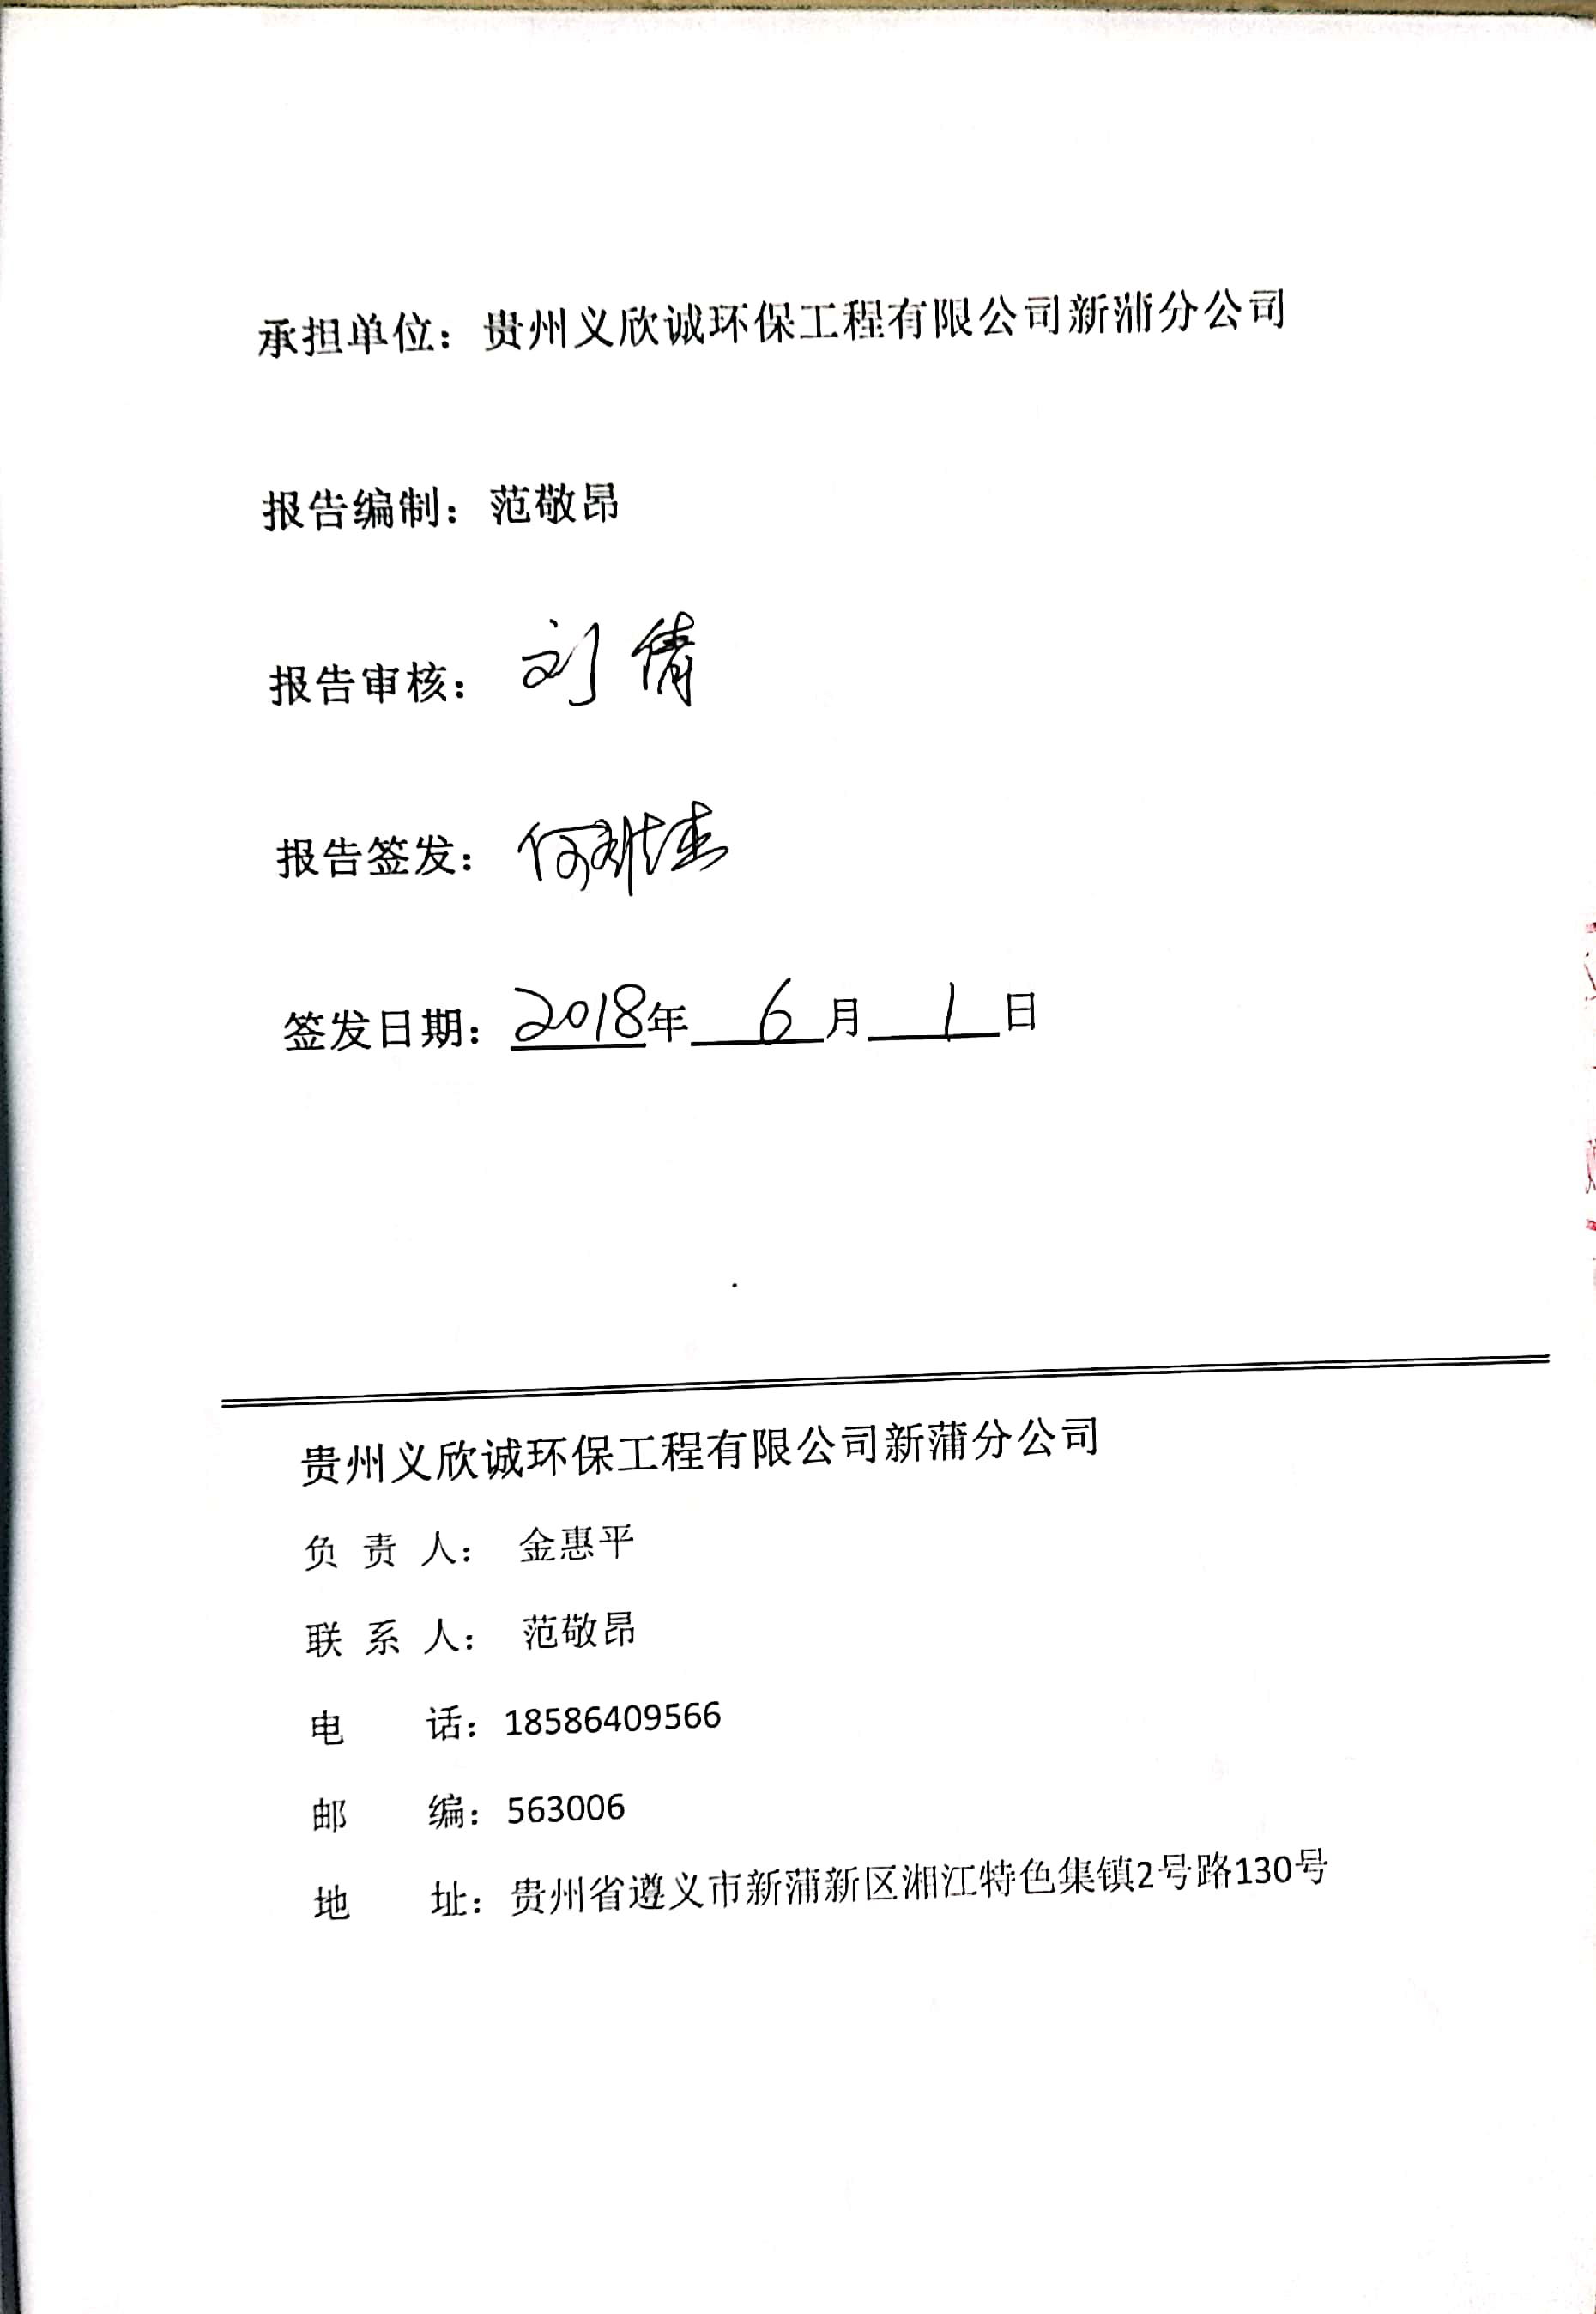 承担单位：贵州义欣诚环保工程有限公司新蒲分公司
报告编制：范敬昂
报告审核：刘倩
报告签发：何
签发日期：2018年 6 月 1 日
贵州义欣诚环保工程有限公司新蒲分公司
负 责 人： 金惠平
联 系 人： 范敬昂
电 话：18586409566
邮 编：563006
地 址：贵州省遵义市新蒲新区湘江特色集镇2号路130号